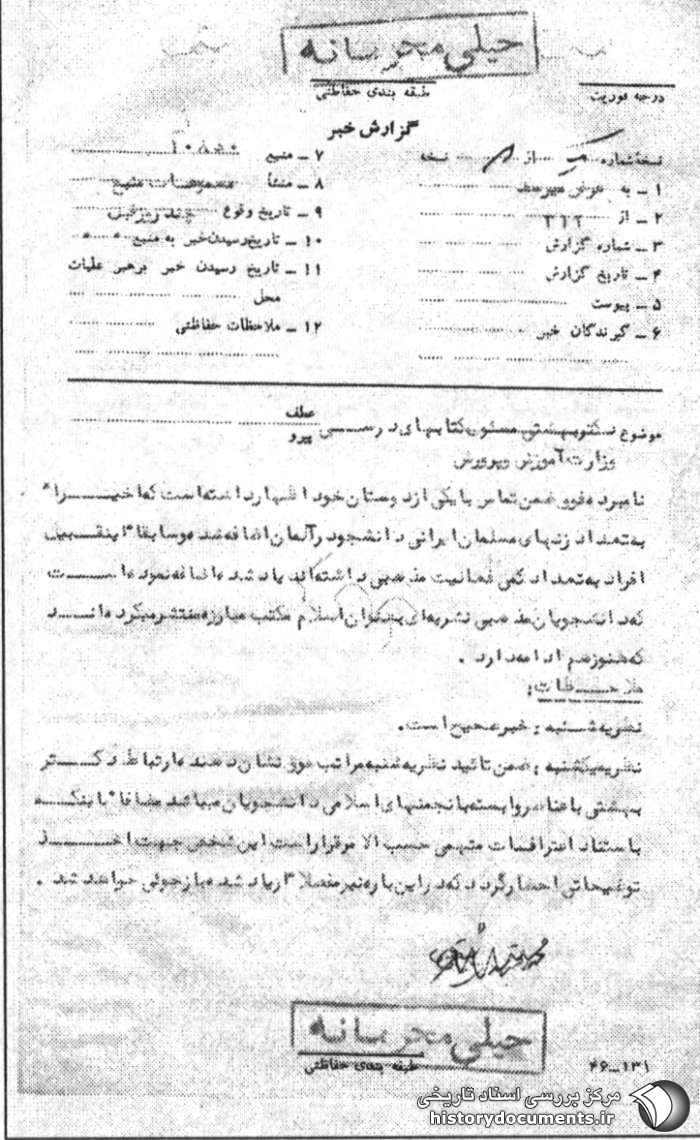 خیلی محرمانه
طبقه بندی حفاظتی
درجه فوریت
گزارش خبر
نسخه شماره از نسخه
۱ ـ به
۲ ـ از ۳۱۲
۳ ـ شماره گزارش
۴ ـ تاریخ گزارش
۵ ـ پیوست
۶ ـ گیرندگان خبر
۷ ـ منبع
۸ ـ منشأ منبع
۹ ـ تاریخ وقوع چند روز قبل
۱۰ ـ تاریخ رسیدن خبر به منبع
۱۱ ـ تاریخ رسیدن خبر برهبر عملیات
محل
۱۲ ـ ملاحظات حفاظتی
عطف
موضوع دکتر بهشتی مسئول کتابهای درسی پیرو
وزارت آموزش و پرورش
نامبرده فوق ضمن تماس با یکی از دوستان خود اظهار داشته است که اخیراً
به تعداد زنهای مسلمان ایرانی دانشجو در آلمان اضافه شده و سابقاً اینقبیل
افراد به تعداد کمی فعالیت مذهبی داشته‌اند یاد شده اضافه نموده است
که دانشجویان مذهبی نشریه‌ای بعنوان اسلام مکتب مبارز منتشر میکرده‌اند
که هنوز هم ادامه دارد .
ملاحظات:
نظریه شنبه : خبر صحیح است.
نظریه یکشنبه : ضمن تائید نظریه شنبه مراتب فوق نشان دهنده ارتباط دکتر
بهشتی با عناصر وابسته به انجمنهای اسلامی دانشجویان میباشد مضافاً باینکه
باستناد اعترافات متهمی حسب الامر قرار است این شخص جهت اخذ
توضیحاتی احضار گردد که در این باره نیز مفصلاً از یاد شده بازجوئی خواهد شد .
خیلی محرمانه
طبقه بندی حفاظتی
۱۳۱ـ۴۶
مرکز بررسی اسناد تاریخی
historydocuments.ir